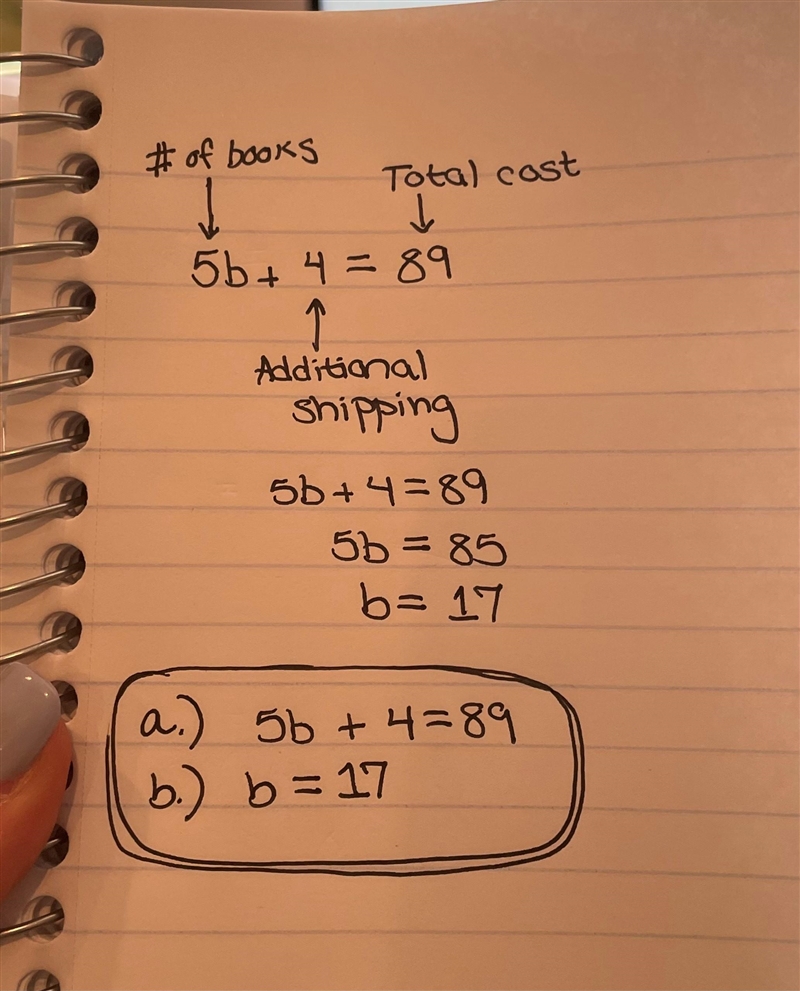 # of books
Total cost
5b + 4 = 89
Additional
shipping
5b + 4 = 89
5b = 85
b = 17
a.) 5b + 4 = 89
b.) b = 17